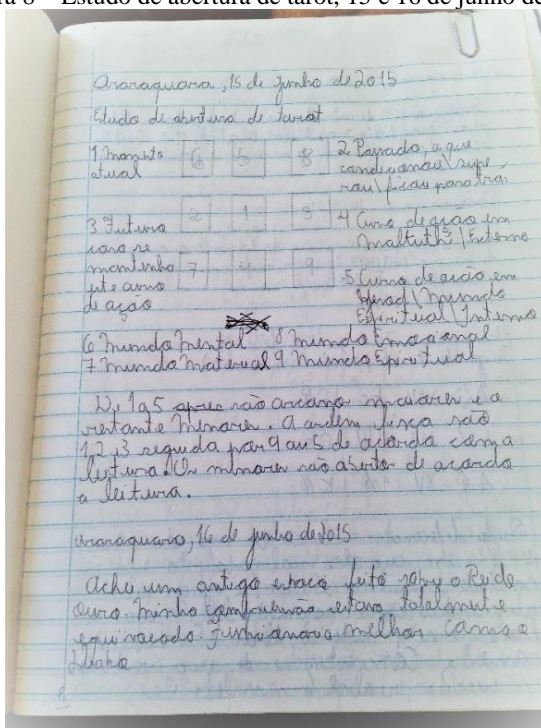 Estudo de abertura de tarot, 15 e 16 de junho de
Araraquara, 15 de junho de 2015
Estudo de abertura de tarot
1 Momento atual
6 5 8
2 Passado, o que
condicionou\ supe
rou\ ficou para trás
2 1 3
3 Futuro
caso se
mantenha
este curso
de ação
4 Curso de ação em
\ Externo
7 4 9
5 Curso de ação em
\ Mundo
Espiritual \ Interno
6 Mundo Mental 8 Mundo Emocional
7 Mundo Material 9 Mundo Espiritual
De 1 a 5 são arcanos maiores e o
restante menores. A ordem são
1, 2, 3 seguida por 4 ou 5 de acordo com a
leitura. Os menores são abertos de acordo
a leitura.
Araraquara, 16 de junho de 2015
Achei um antigo feito sobre o Rei de
Ouro. Minha compreensão estava totalmente
equivocada. Funcionaria melhor como o